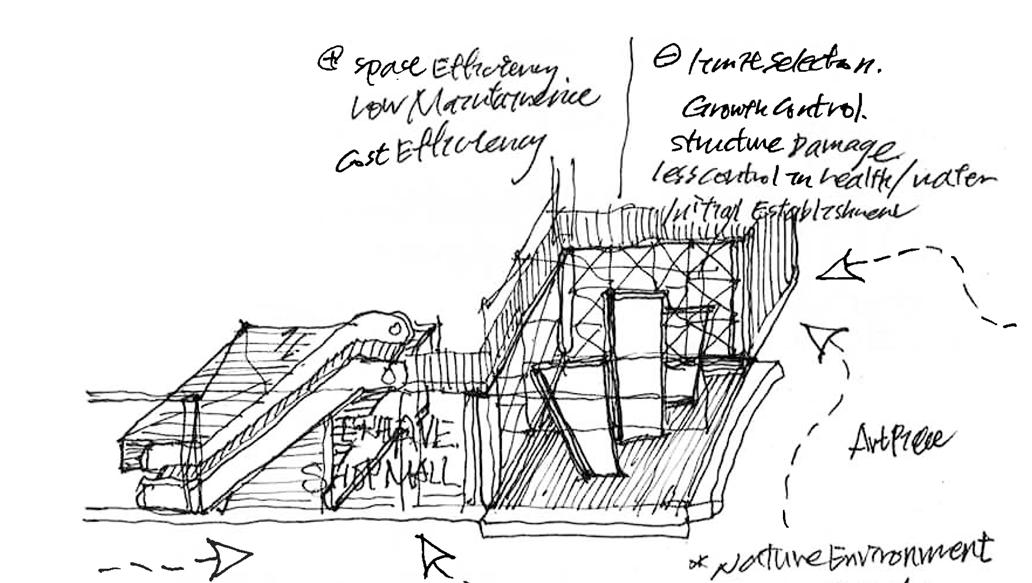 ⊕ Space Efficiency
Low Maintainence
Cost Efficiency
⊖ limit Selection.
Growth Control.
structure Damage
less control in health/water
initial Establishment
Art Piece
SHOP MALL
* Nature Environment